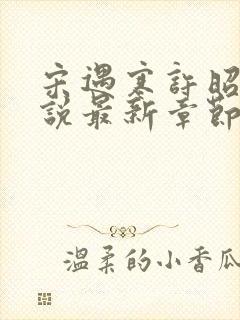 宋遇寒許昭
說最新章節
溫柔的小香瓜